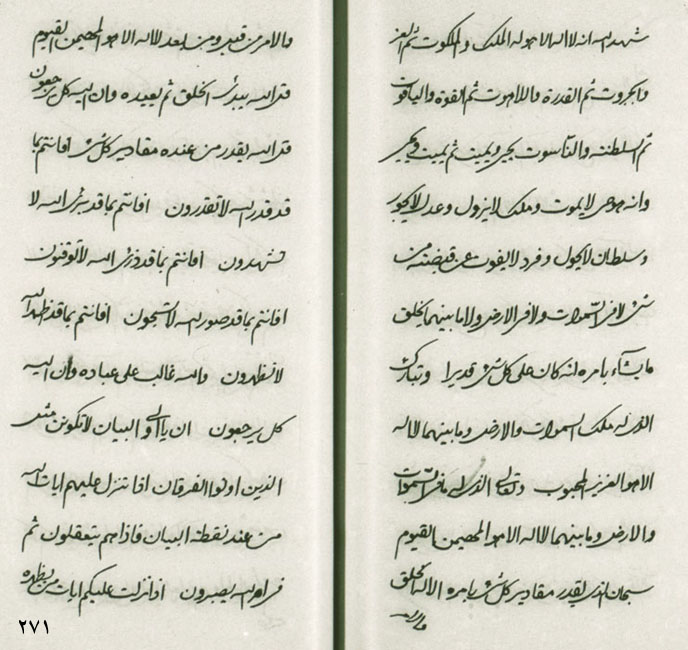 شهد الله انه لا اله الا هو له الملك والملكوت ثم العز
والجبروت ثم القدرة واللاهوت ثم القوة والياقوت
ثم السلطنة والناسوت يحيي ويميت ثم يميت ويحيي
وانه هو حي لا يموت وملك لا يزول وعدل لا يجور
وسلطان لا يحول وفرد لا يفوت عن قبضته من
شئ لا في السموات ولا في الارض ولا ما بينهما يخلق
ما يشآء بامره انه كان على كل شئ قديرا وتبارك
الذي له ملك السموات والارض وما بينهما لا اله
الا هو العزيز المحبوب وتعالى الذي له ما في السموات
والارض وما بينهما لا اله الا هو المهيمن القيوم
سبحان الذي يقدر مقادير كل شئ بامره الا له الخلق
والامر
والامر من قبل ومن بعد لا اله الا هو المهيمن القيوم
قل الله يبدئ الخلق ثم يعيده وان اليه كل يرجعون
قل الله يقدر من عنده مقادير كل شئ افانتم بما
قد قدر الله لا تقدرون افانتم بما قد نزل الله لا
تشهدون افانتم بما قد رزق الله لا توقنون
افانتم بما قد صور الله لا تسجدون افانتم بما قد ظهر الله
لا تنظرون والله غالب على عباده وان اليه
كل يرجعون ان يا اولو البيان لا تكونن مثل
الذين اوتوا الفرقان اذا تنزل عليهم ايات الله
من عند نقطة البيان فاذا هم يتعقلون ثم
في امر الله يصبرون اذا نزلت عليكم ايات من يظهره
٢٧١